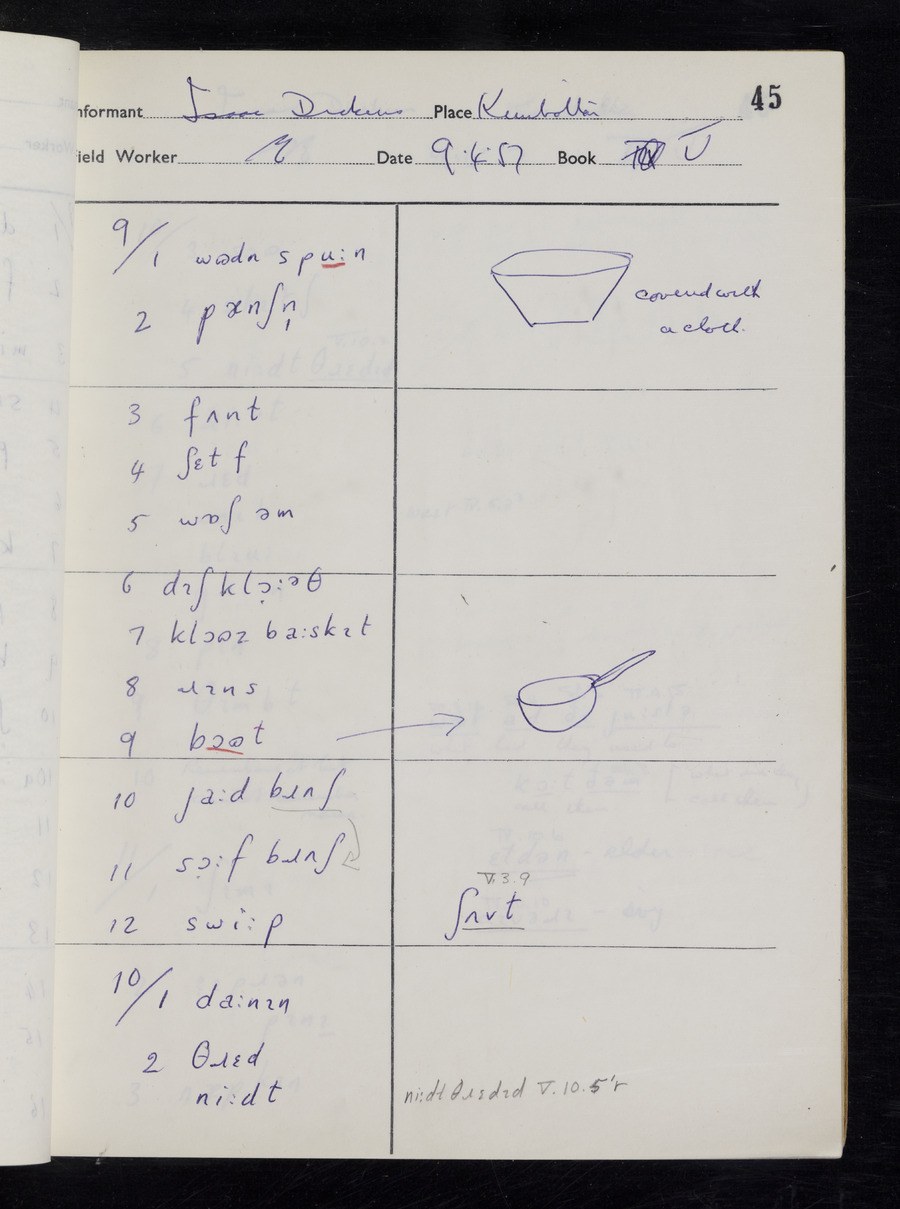 45
nformant Isaac Dickens Place Kimbolton
ield Worker Date 9.4.57 Book V
9/1 wʊdn spu:n
covered with
2 panʃn̩
a cloth.
3 fɹʌnt
4 ʃɛt f
5 wɒʃ əm
6 dɪʃ klɔ̣:əθ
7 klɔʊz ba:skɪt
8 ɹɪns
9 bɔʊt
10 ja:d bɹɪnʃ
11 sɔ̣:f bɹɪnʃ
V.3.9
12 swi:p
ʃʌvt
10/1 da:nɪn
2 θɹɛd
ni:dt
ni:dt θɹɛdɪd V.10.5'r